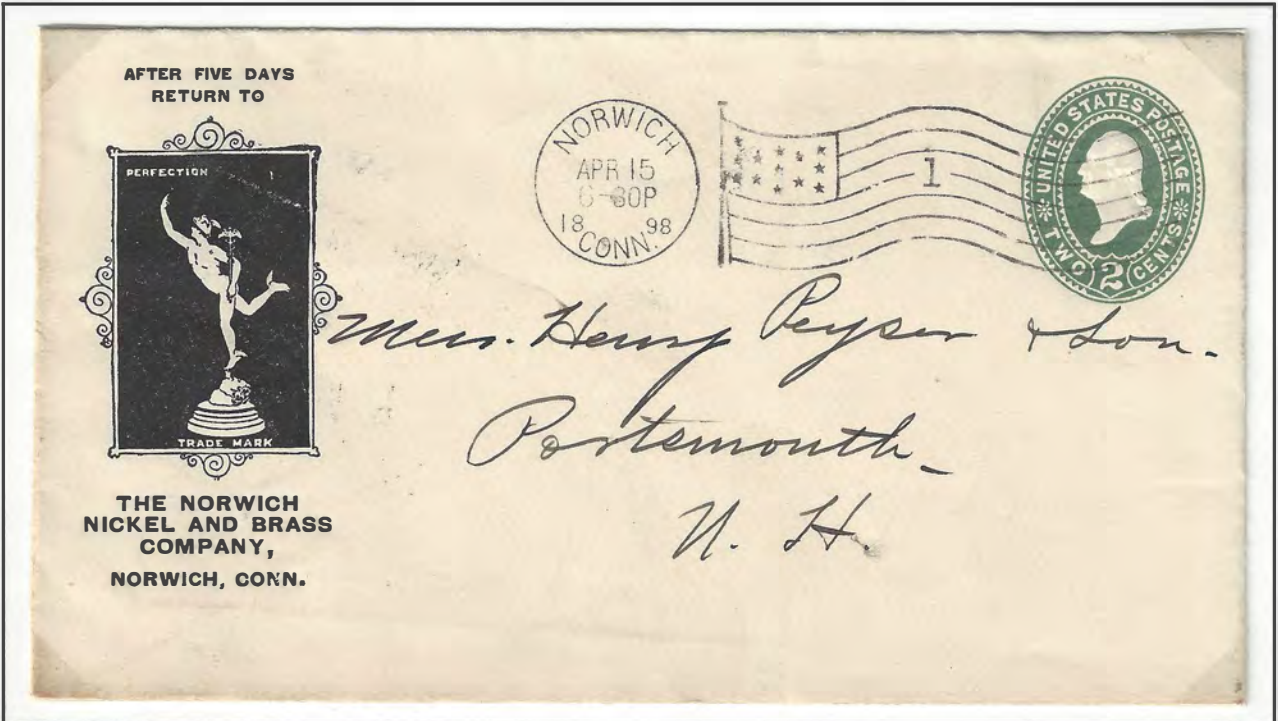 AFTER FIVE DAYS
RETURN TO
PERFECTION
TRADE MARK
THE NORWICH
NICKEL AND BRASS
COMPANY,
NORWICH, CONN.
NORWICH
APR 15
6-30P
18 98
CONN.
1
UNITED STATES POSTAGE
TWO 2 CENTS
Mess. Henry Peyser & Son.
Portsmouth
N. H.